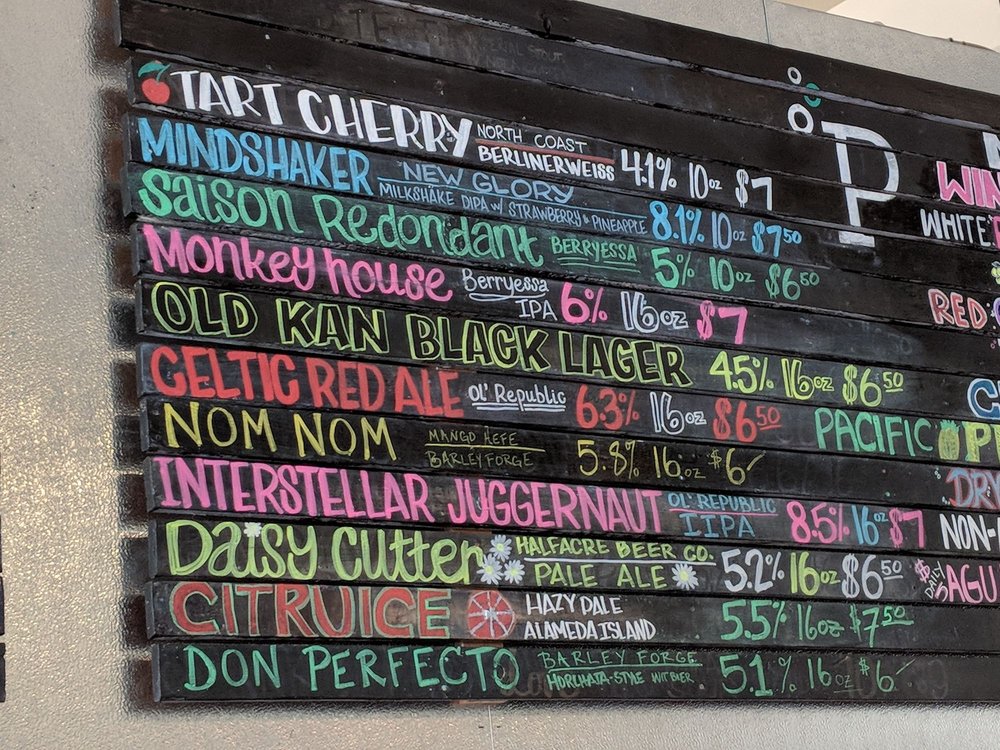 TART CHERRY NORTH COAST BERLINERWEISS 4.1% 10oz $7
MINDSHAKER NEW GLORY MILKSHAKE DIPA W/ STRAWBERRY & PINEAPPLE 8.1% 10oz $7.50
Saison Redondant BERRYESSA 5% 10oz $6.50
Monkey house Berryessa IPA 6% 16oz $7
OLD KAN BLACK LAGER 4.5% 16oz $6.50
CELTIC RED ALE OL' Republic 6.3% 16oz $6.50
NOM NOM MANGO HEFE BARLEY FORGE 5.8% 16oz $6
INTERSTELLAR JUGGERNAUT OL' REPUBLIC IIPA 8.5% 16oz $7
Daisy Cutter HALFACRE BEER CO. PALE ALE 5.2% 16oz $6.50
CITRUICE HAZY DALE ALAMEDA ISLAND 5.5% 16oz $7.50
DON PERFECTO BARLEY FORGE HORCHATA-STYLE WITBIER 5.1% 16oz $6
P
WIN
WHITE:
RED:
PACIFIC
DRY
NON-
DAILY AGU